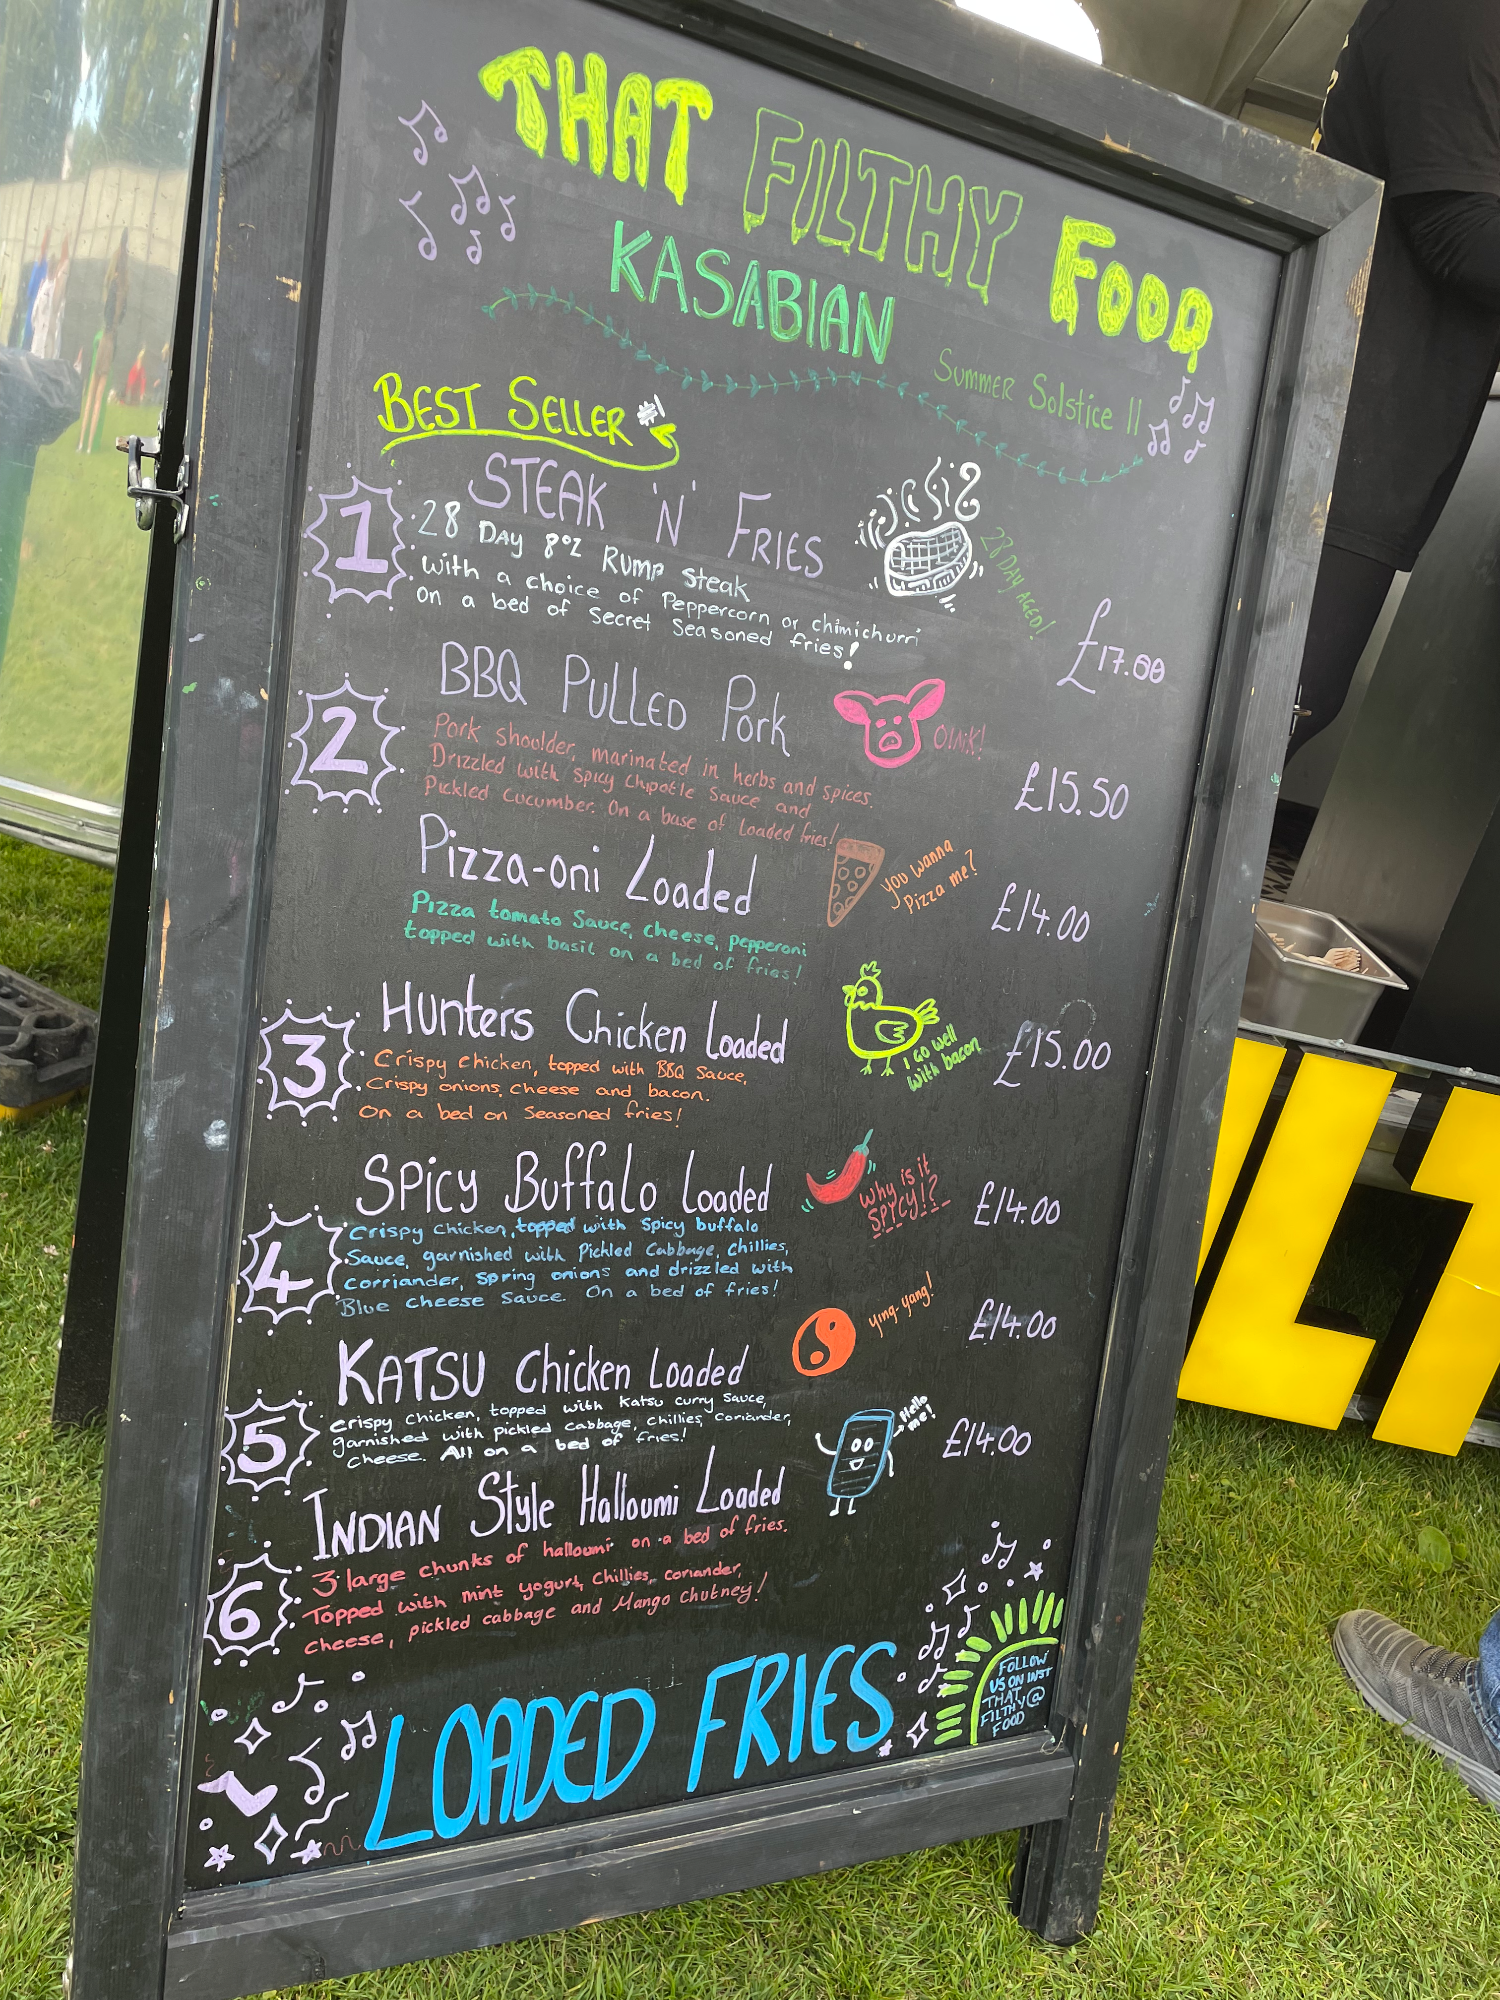 THAT FILTHY FOOD
KASABIAN
Summer Solstice II
BEST SELLER #1
1
STEAK 'N' FRIES
28 DAY 8oz Rump Steak
with a choice of Peppercorn or chimichurri
on a bed of Secret Seasoned fries!
28 DAY AGED!
£17.00
2
BBQ PULLED Pork
Pork shoulder, marinated in herbs and spices.
Drizzled with spicy Chipotle Sauce and
Pickled Cucumber. On a base of Loaded fries!
OINK!
£15.50
Pizza-oni Loaded
Pizza tomato Sauce, cheese, pepperoni
topped with basil on a bed of fries!
you wanna
Pizza me?
£14.00
3
HUNTERS Chicken Loaded
Crispy chicken, topped with BBQ Sauce,
Crispy onions, cheese and bacon.
On a bed on Seasoned fries!
I GO well
with bacon
£15.00
4
SPICY Buffalo Loaded
Crispy Chicken, topped with Spicy buffalo
Sauce, garnished with Pickled Cabbage, Chillies,
Corriander, Spring onions and drizzled with
Blue Cheese Sauce. On a bed of fries!
Why is it
SPICY!?
£14.00
5
KATSU Chicken Loaded
crispy Chicken, topped with Katsu curry Sauce,
garnished with pickled cabbage, chillies, Coriander,
Cheese. All on a bed of fries!
ying-yang!
£14.00
6
INDIAN Style Halloumi Loaded
3 large chunks of halloumi on a bed of fries.
Topped with mint yogurt, chillies, coriander,
cheese, pickled cabbage and Mango Chutney!
Hello
me!
£14.00
LOADED FRIES
FOLLOW
US ON INST
THAT @
FILTHY
FOOD
LT